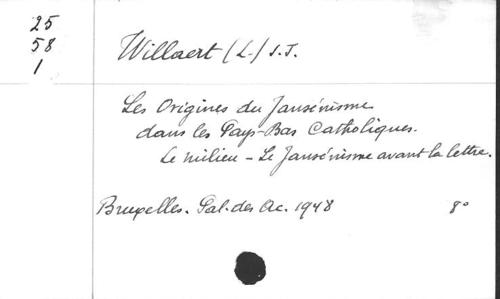 25
58
1
Willaert (L.) S.J.
Les Origines du Jansénisme
dans les Pays-Bas Catholiques.
Le milieu - Le Jansénisme avant la lettre.
Bruxelles. Pal. des Ac. 1948 8°